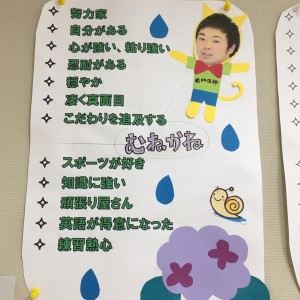 努力家
自分がある
心が強い、粘り強い
忍耐がある
穏やか
凄く真面目
こだわりを追及する
むねがね
スポーツが好き
知識に強い
頑張り屋さん
英語が得意になった
練習熱心